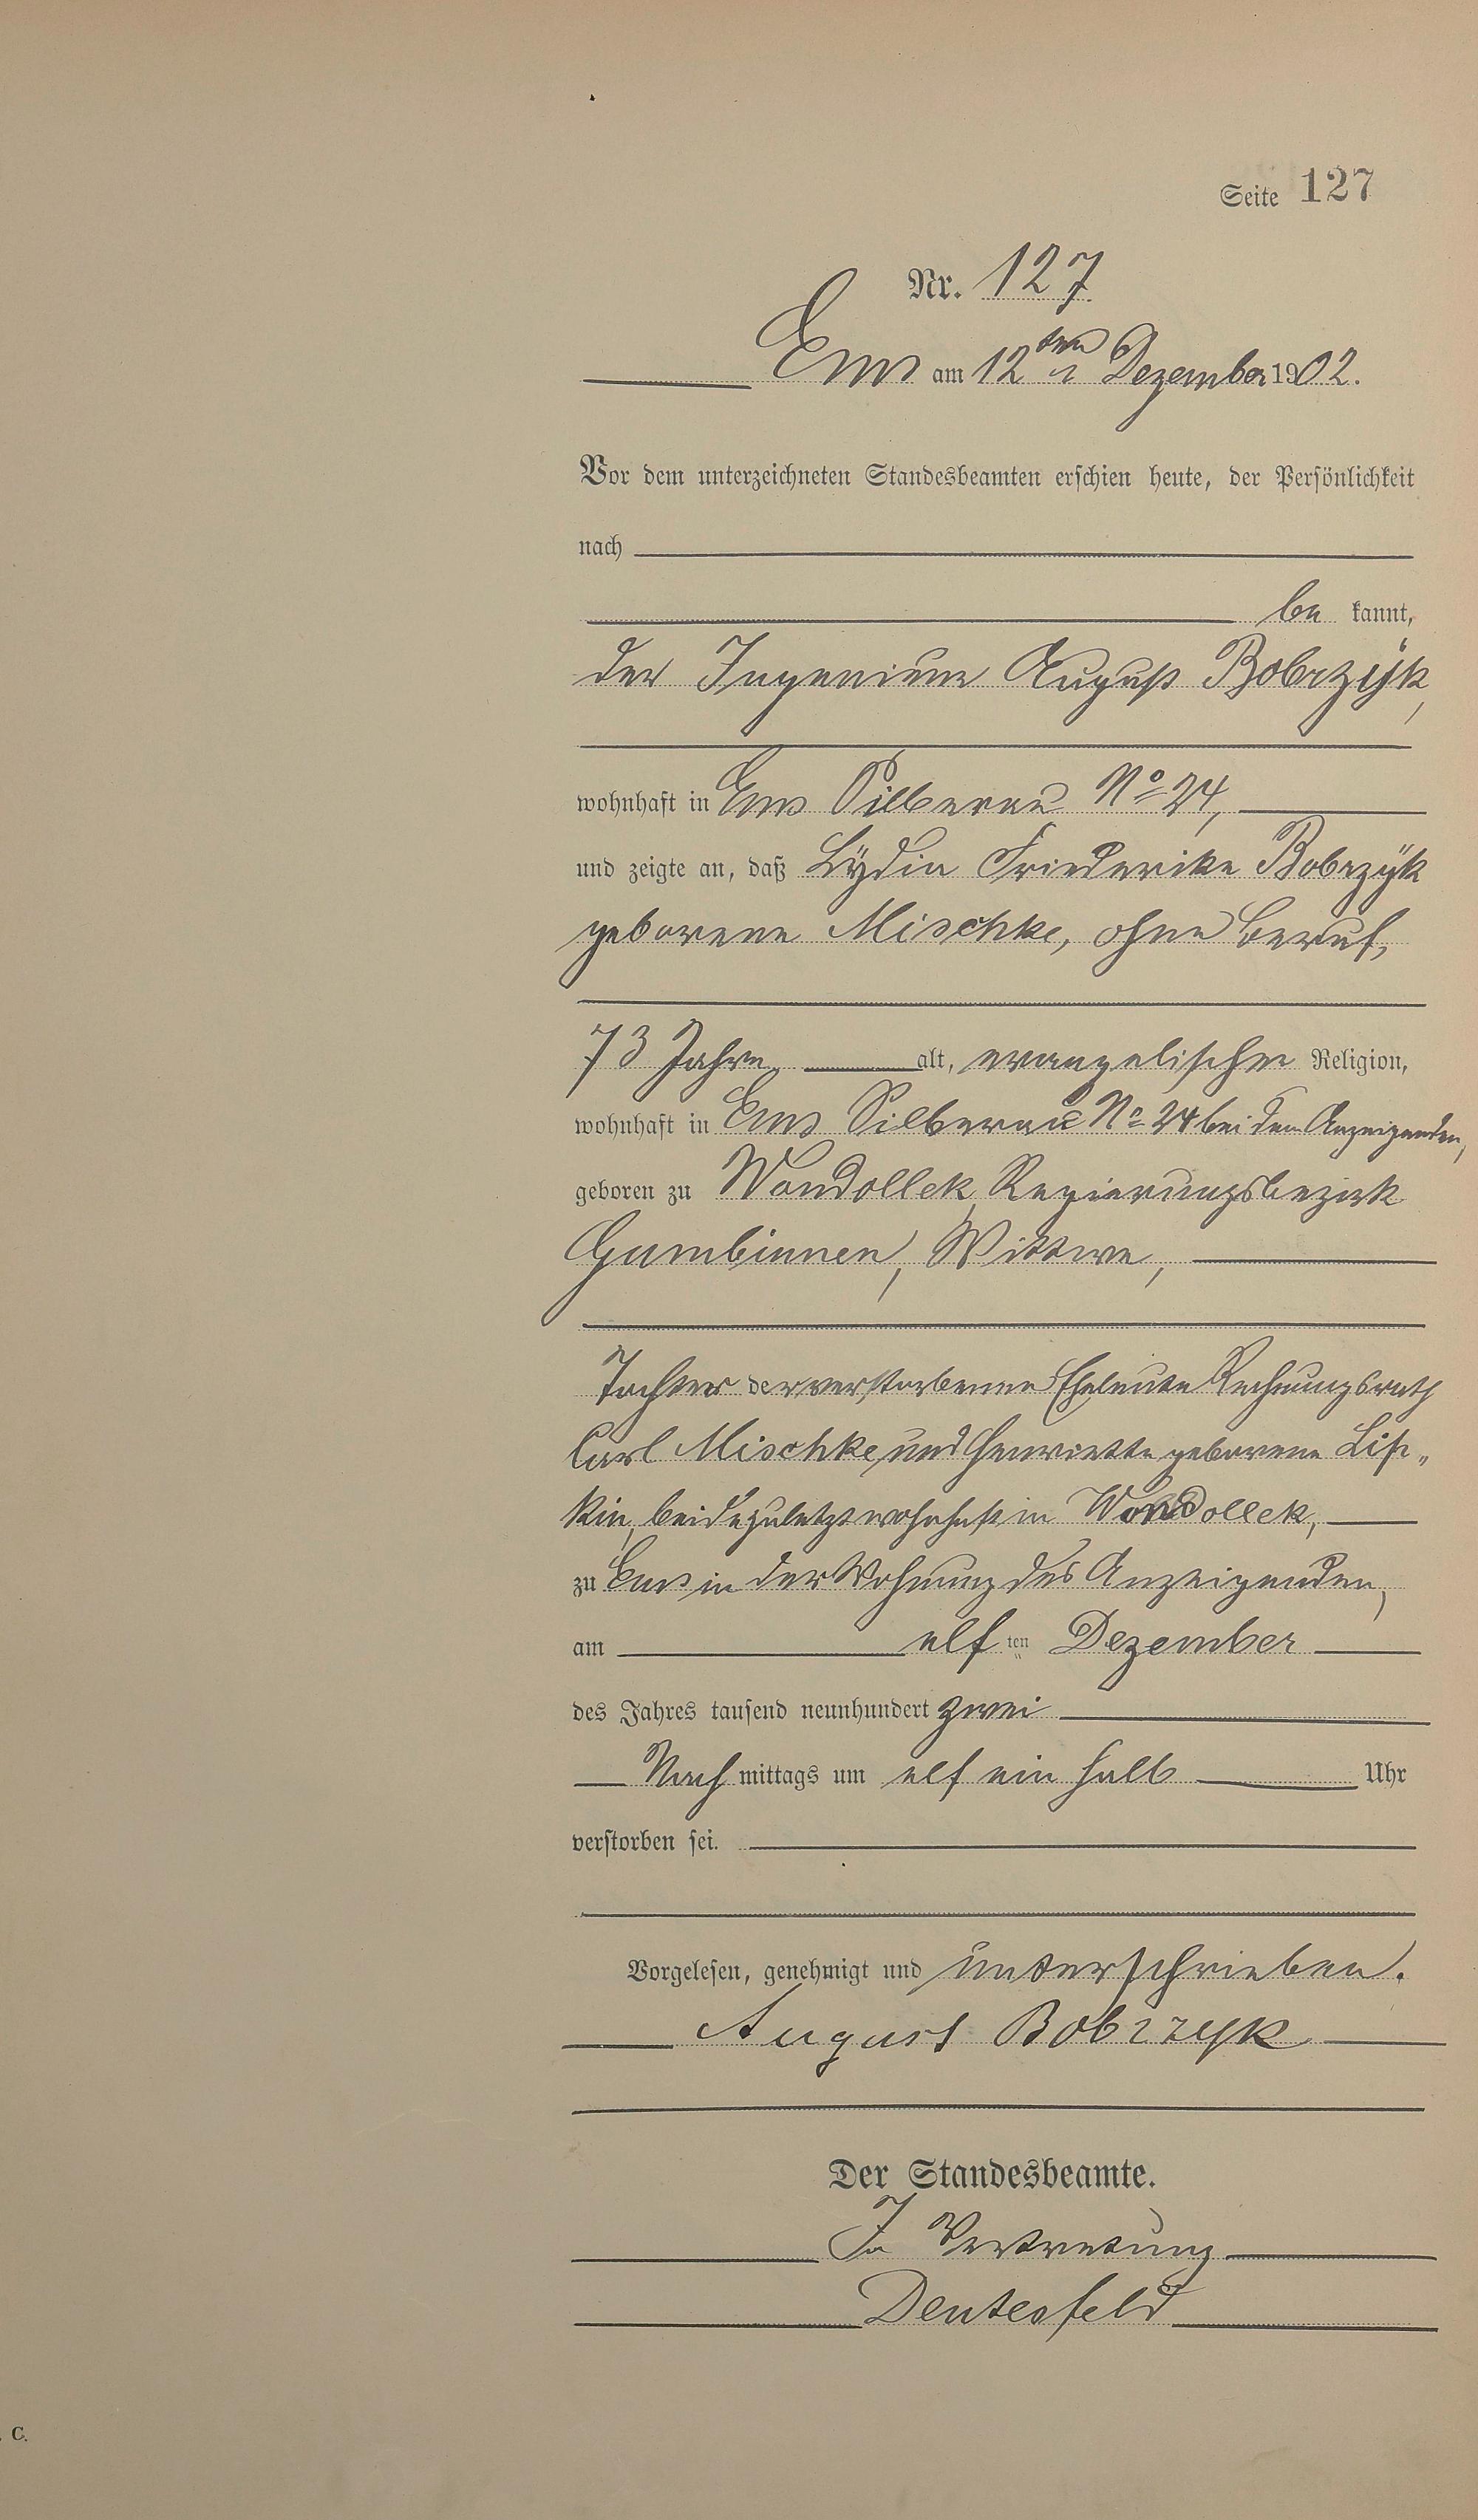 Seite 127
Nr. 127
Ems am 12ten Dezember 1902.
Vor dem unterzeichneten Standesbeamten erschien heute, der Persönlichkeit
nach
be kannt,
der Ingenieur August Bobrzÿk,
wohnhaft in Ems Silberau No 24,
und zeigte an, daß Lÿdia Friederike Bobrzÿk
geborene Mischke, ohne Beruf,
73 Jahre alt, evangelischer Religion,
wohnhaft in Ems Silberau No 24 bei dem Anzeigenden,
geboren zu Wondollek, Regierungsbezirk
Gumbinnen, Wittwe,
Tochter der verstorbenen Eheleute Rechnungsrath
Carl Mischke und Henriette geborene Lis„
kin, beide zuletzt wohnhaft in Wondollek,
zu Ems in der Wohnung des Anzeigenden,
am elf ten Dezember
des Jahres tausend neunhundert zwei
Nach mittags um elf ein halb Uhr
verstorben sei.
Vorgelesen, genehmigt und unterschrieben.
August Bobrzyk
Der Standesbeamte.
In Vertretung
C.